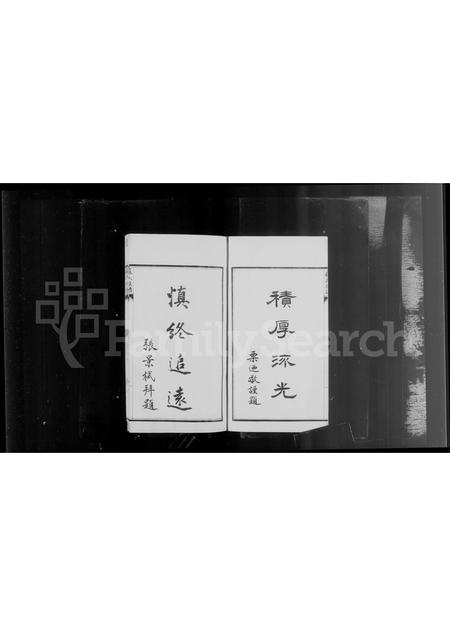 積厚流光
栗迺敬謹題
慎終追遠
張景栻拜題
FamilySearch